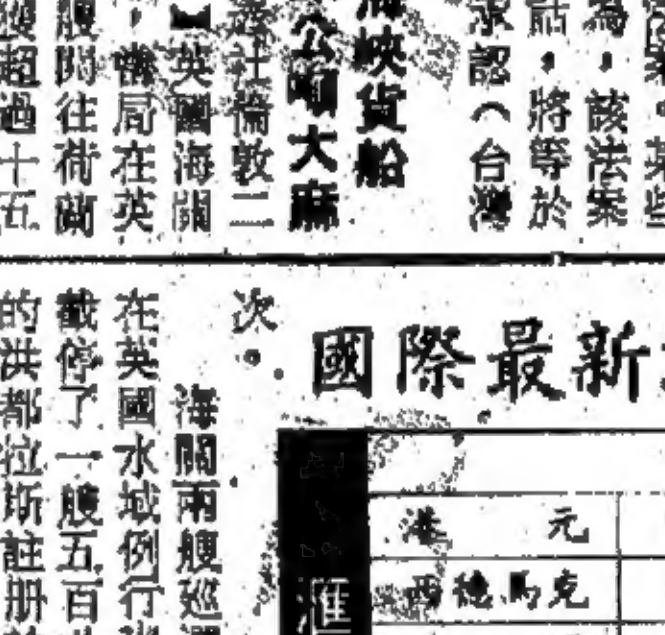 為，該法案
話，將等於
承認（台灣
海峽貨船
公開大麻
社倫敦二
】英國海關
，當局在英
艘開往荷蘭
超過十五
次。
海關兩艘巡邏
在英國水域例行
截停了一艘五百
的洪都拉斯註册
國際最新
匯
港元
西德馬克